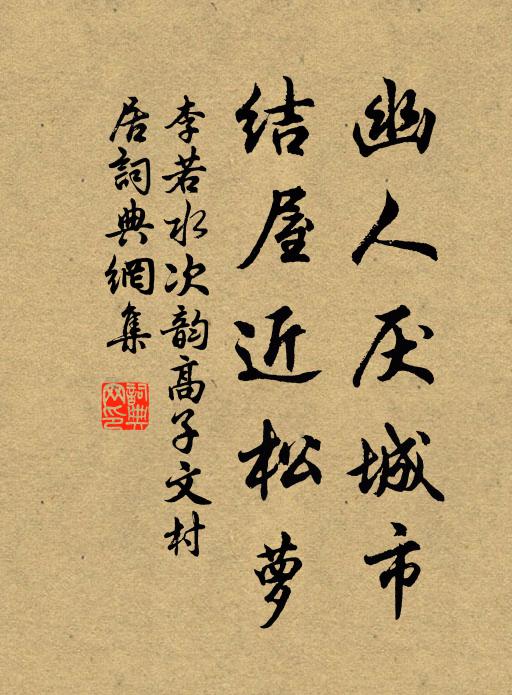 幽人厌城市
结屋近松萝
李若水次韵高子文村
居詞典網集
詞典
网印